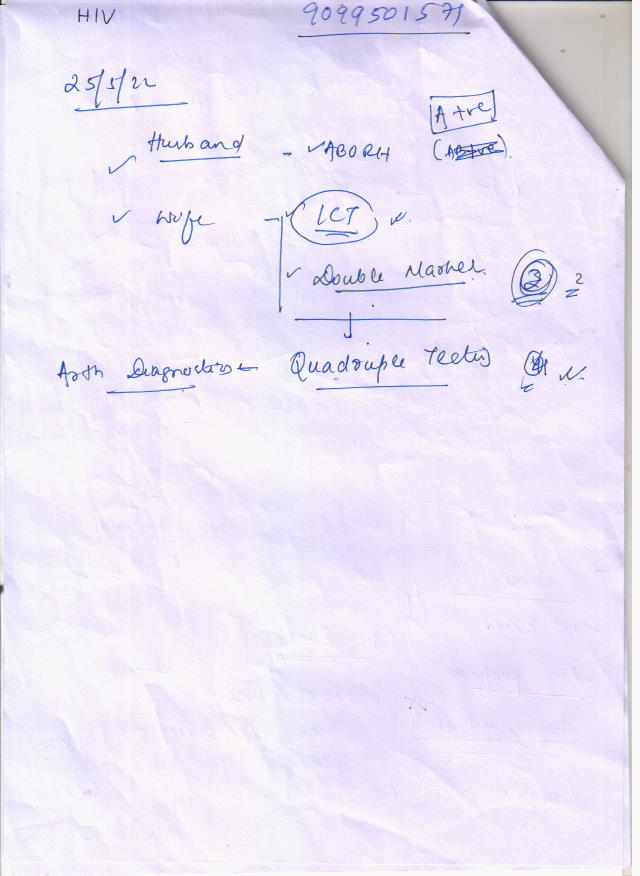 HIV 9099501571
25/5/22
A +ve
✓ Husband - ✓ ABORH (AB+ve).
✓ Wife - ✓ ICT
✓ Double Marker. 3 2
Arth Diagnostics - Quadruple Test 4